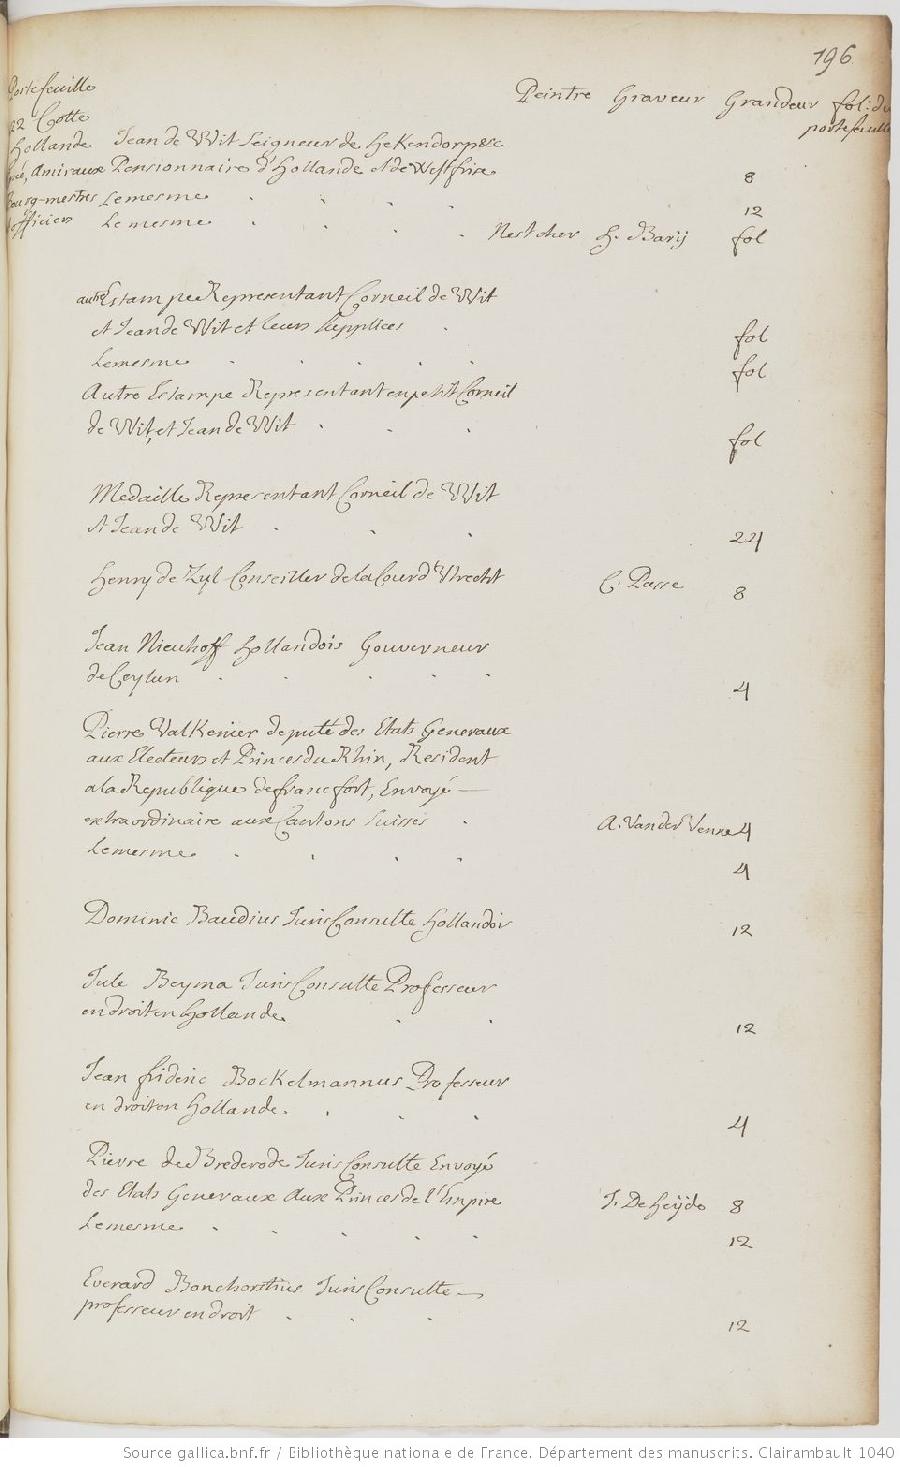 196
Portefeuille
Peintre Graveur Grandeur fol: du
portefeuille
22 Cotte
Hollande Jean de Wit Seigneur de Hekendorp &c
Amiraux Pensionnaire d'Hollande et de Westfrise 8
Bourg-mestres Lemesme . . . . 12
officiers Lemesme . . . . Netscher H. Bary fol
autre Estampe Representant Corneil de Wit
et Jean de Wit et leurs supplices . fol
Lemesme . . . . . fol
Autre Estampe Representant en petit Corneil
de Wit, et Jean de Wit . . . fol
Medaille Representant Corneil de Wit
et Jean de Wit . . . 24
Henry de Zyl Conseiller de la Cour d'Utrecht C. Passe 8
Jean Nieuhoff Hollandois Gouverneur
de Ceylan . . . . . 4
Pierre Valkenier deputé des Etats Generaux
aux Electeurs et Princes du Rhin, Resident
a la Republique de francfort, Envoyé —
extraordinaire aux Cantons Suisses . A. Vander Venne 4
Lemesme . . . . 4
Dominic Baudius JurisConsulte Hollandois 12
Jule Beyma JurisConsulte Professeur
en droit en Hollande . . 12
Jean frideric Bockelmannus Professeur
en droit en Hollande . . . . 4
Pierre de Brederode JurisConsulte Envoyé
des Etats Generaux aux Princes de l'Empire J. De Heyde 8
Lemesme . . . . . 12
Everard Bonchorstius JurisConsulte —
professeur en droit . . . 12
Source gallica.bnf.fr / Bibliothèque nationale de France. Département des manuscrits. Clairambault 1040